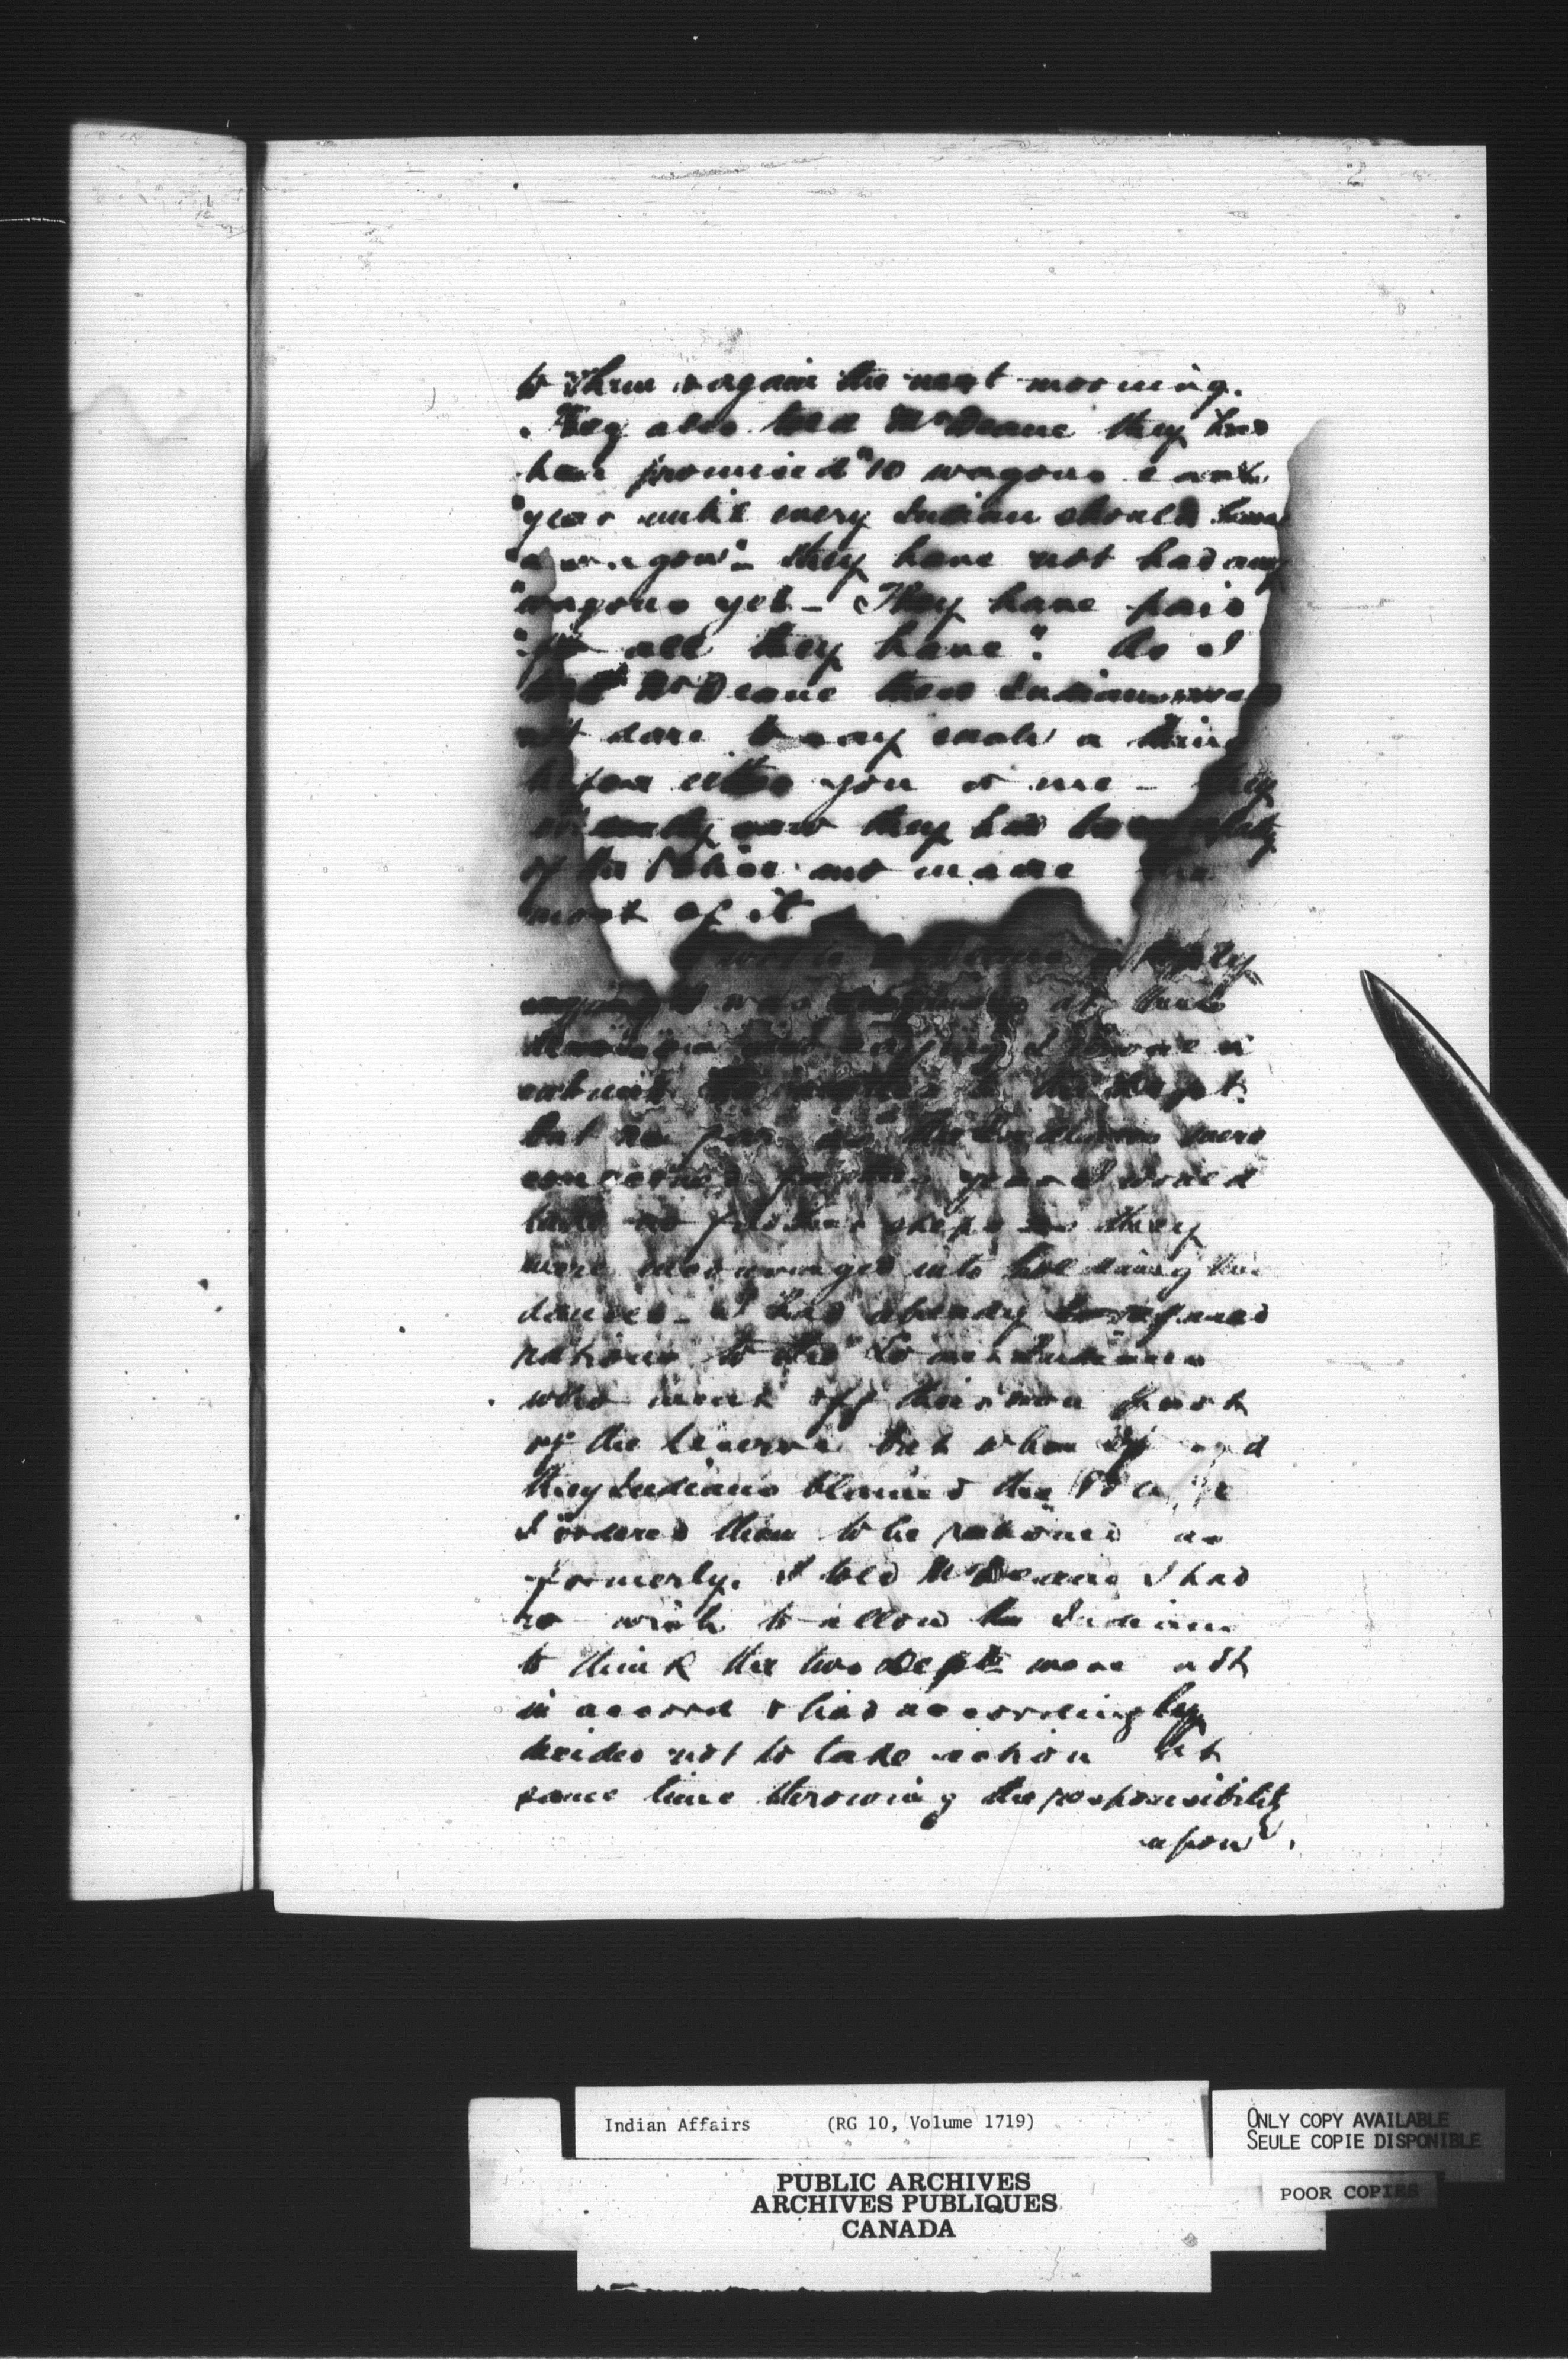 2
to them again the next morning.
They also told Mr Deane they had
been promised "10 wagons each
"year until every Indian should have
"a wagon"_ they have not had any
"wagons yet _ They have paid
"for all they have". As I
told Mr Deane these Indians would
not dare to say such a thing
before either you or me _ they
evidently saw they had the
of the Police and made the
most of it
I wrote Mr Deane in reply
saying I was surprised at
and saying I would
submit the matter to the Dept.
but so far as the Indians were
concerned for this year I would
take no further steps as they
were encouraged into holding the
dances _ I had already refused
rations to the Indians
who went off their own part
of the Reserve but when
they Indians blamed the Police
I ordered them to be rationed as
formerly. I told Mr Deane I had
no wish to allow the Indians
to think the two Depts were not
in accord & had accordingly
decided not to take action at
same time throwing the responsibility
upon
Indian Affairs (RG 10, Volume 1719)
PUBLIC ARCHIVES
ARCHIVES PUBLIQUES
CANADA
ONLY COPY AVAILABLE
SEULE COPIE DISPONIBLE
POOR COPIES